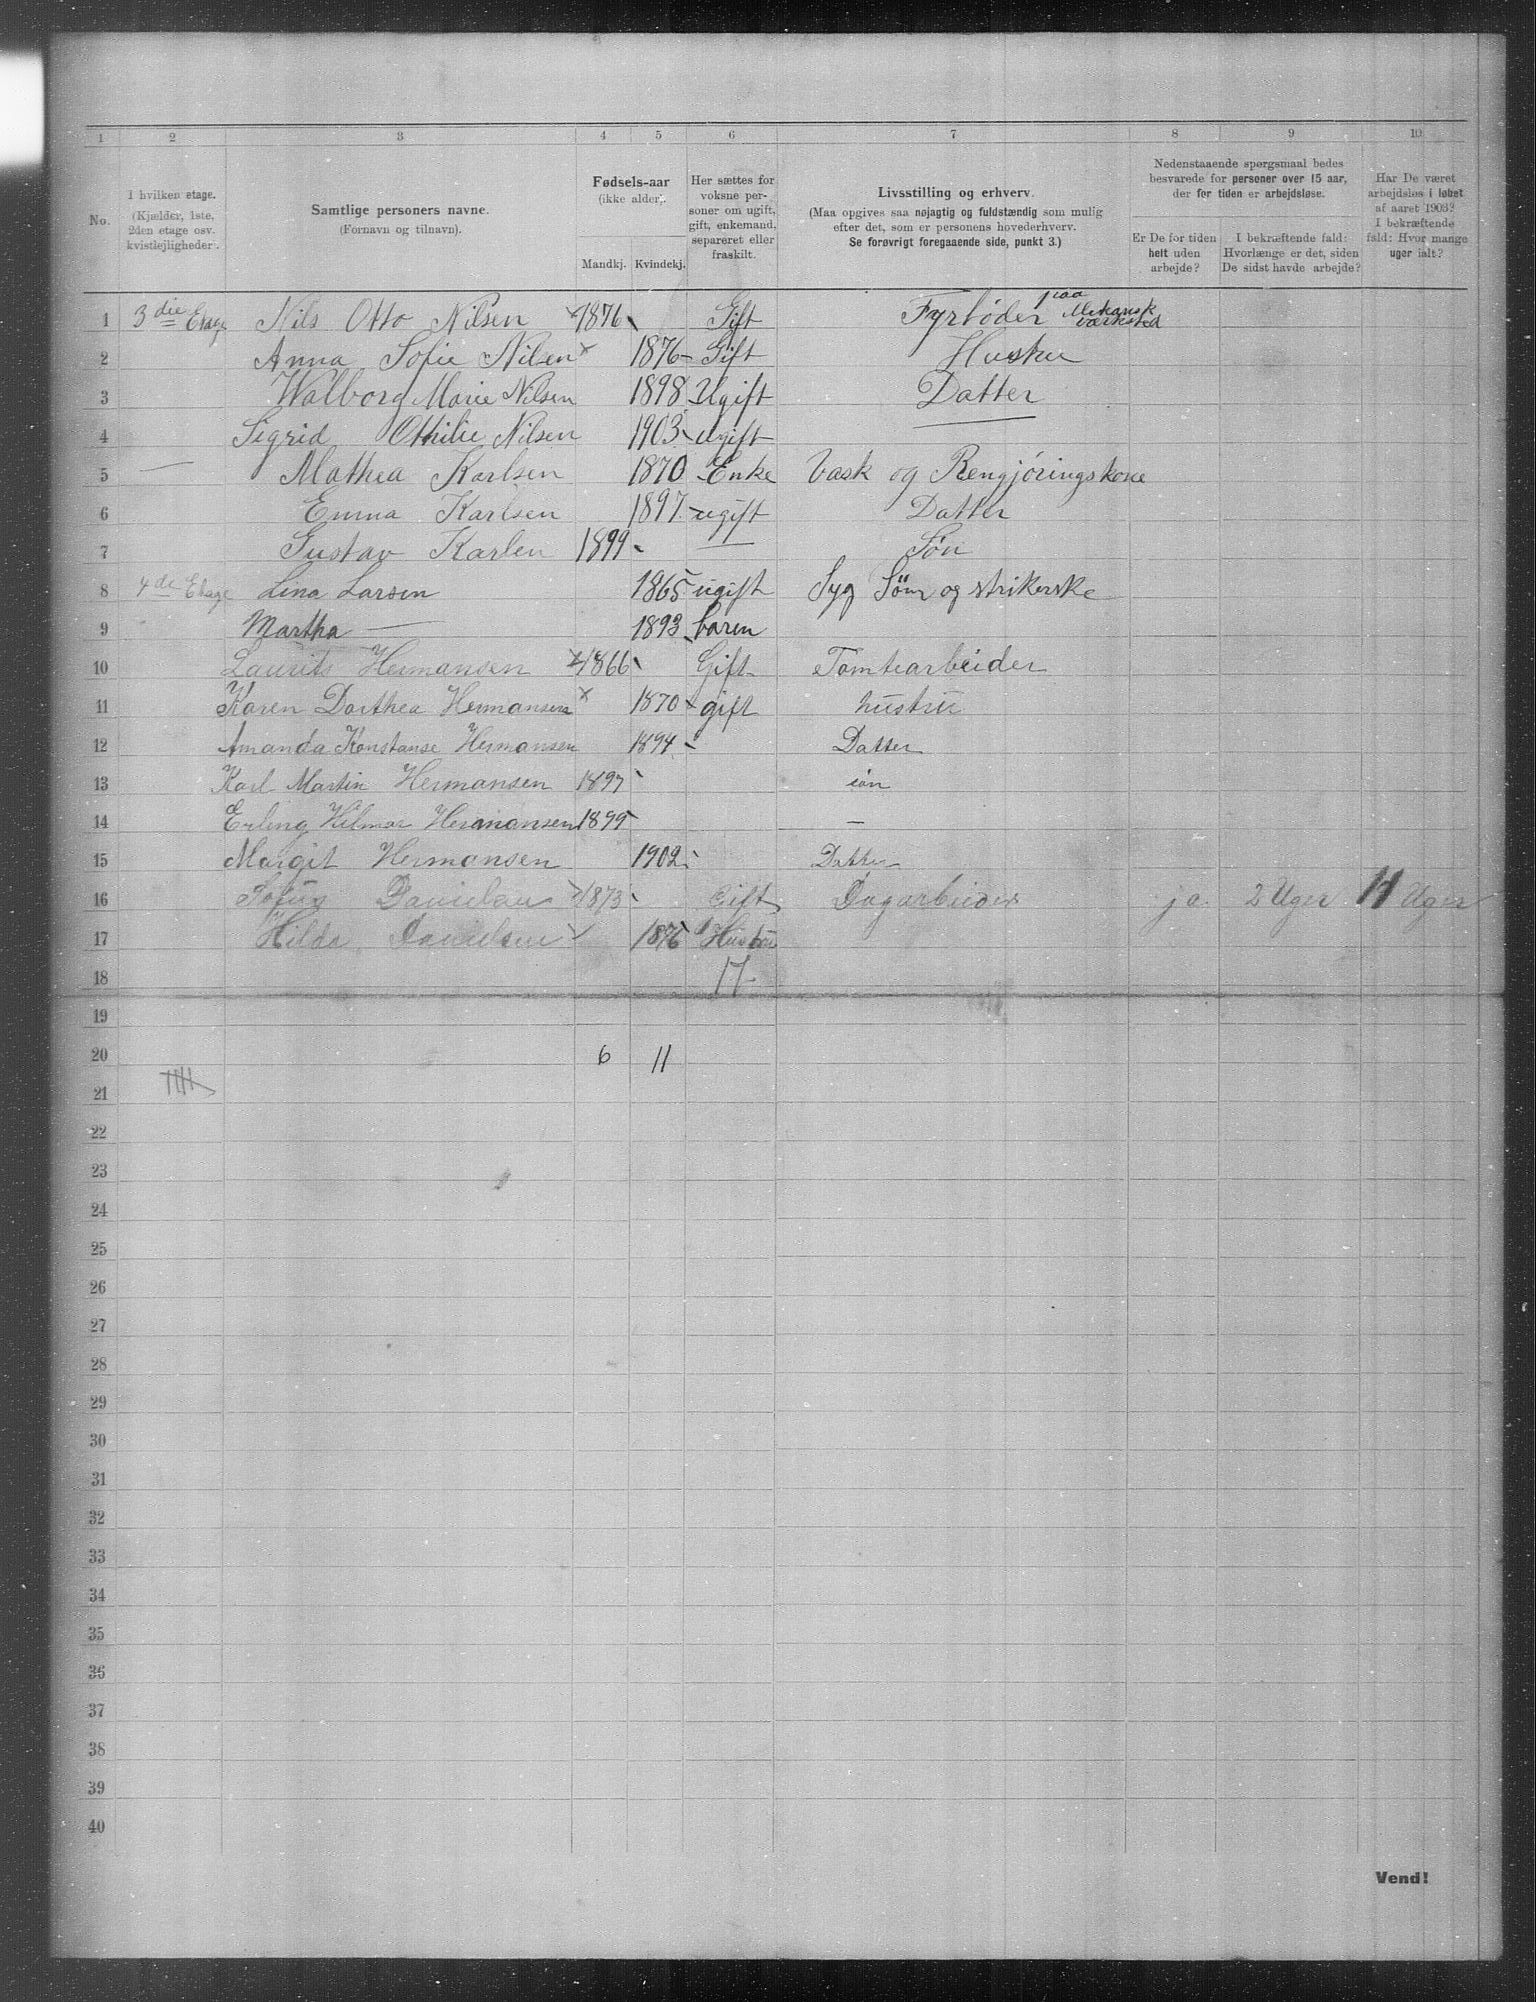 1 2 3 4 5 6 7 8 9 10
No.
I hvilken etage.
(Kjælder, 1ste,
2den etage osv.
kvistlejligheder).
Samtlige personers navne.
(Fornavn og tilnavn).
Fødsels-aar
(ikke alder).
Mandkj. Kvindekj.
Her sættes for
voksne per-
soner om ugift,
gift, enkemand,
separeret eller
fraskilt.
Livsstilling og erhverv.
(Maa opgives saa nøjagtig og fuldstændig som mulig
efter det, som er personens hovederhverv.
Se forøvrigt foregaaende side, punkt 3.)
Nedenstaaende spørgsmaal bedes
besvarede for personer over 15 aar,
der for tiden er arbejdsløse.
Er De for tiden
helt uden
arbejde?
I bekræftende fald:
Hvorlænge er det, siden
De sidst havde arbejde?
Har De været
arbejdsløs i løbet
af aaret 1903?
I bekræftende
fald: Hvor mange
uger ialt?
1 3die Etage Nils Otto Nilsen 1876 Gift Fyrbøder paa Mekanisk Værksted
2 Anna Sofie Nilsen 1876 Gift Hustru
3 Walborg Marie Nilsen 1898 Ugift Datter
4 Sigrid Othilie Nilsen 1903 ugift —
5 — Mathea Karlsen 1870 Enke Vask og Rengjøringskone
6 Emma Karlsen 1897 ugift Datter
7 Gustav Karlen 1899 — Søn
8 4de Etage Lina Larsen 1865 ugift Syg Söm og strikerske
9 Martha — 1893 baren
10 Laurits Hermansen 1866 Gift Tomtearbeider
11 Karen Dorthea Hermansen 1870 gift hustru
12 Amanda Konstanse Hermansen 1894 Datter
13 Karl Martin Hermansen 1897 søn
14 Erling Hilmar Hermansen 1899 —
15 Margit Hermansen 1902 Datter
16 Sofus Danielsen 1873 Gift Dagarbeider ja 2 Uger 11 Uger
17 Hilda Danielsen 1876 Hustru
18 17
19
20 6 11
21
22
23
24
25
26
27
28
29
30
31
32
33
34
35
36
37
38
39
40
Vend!